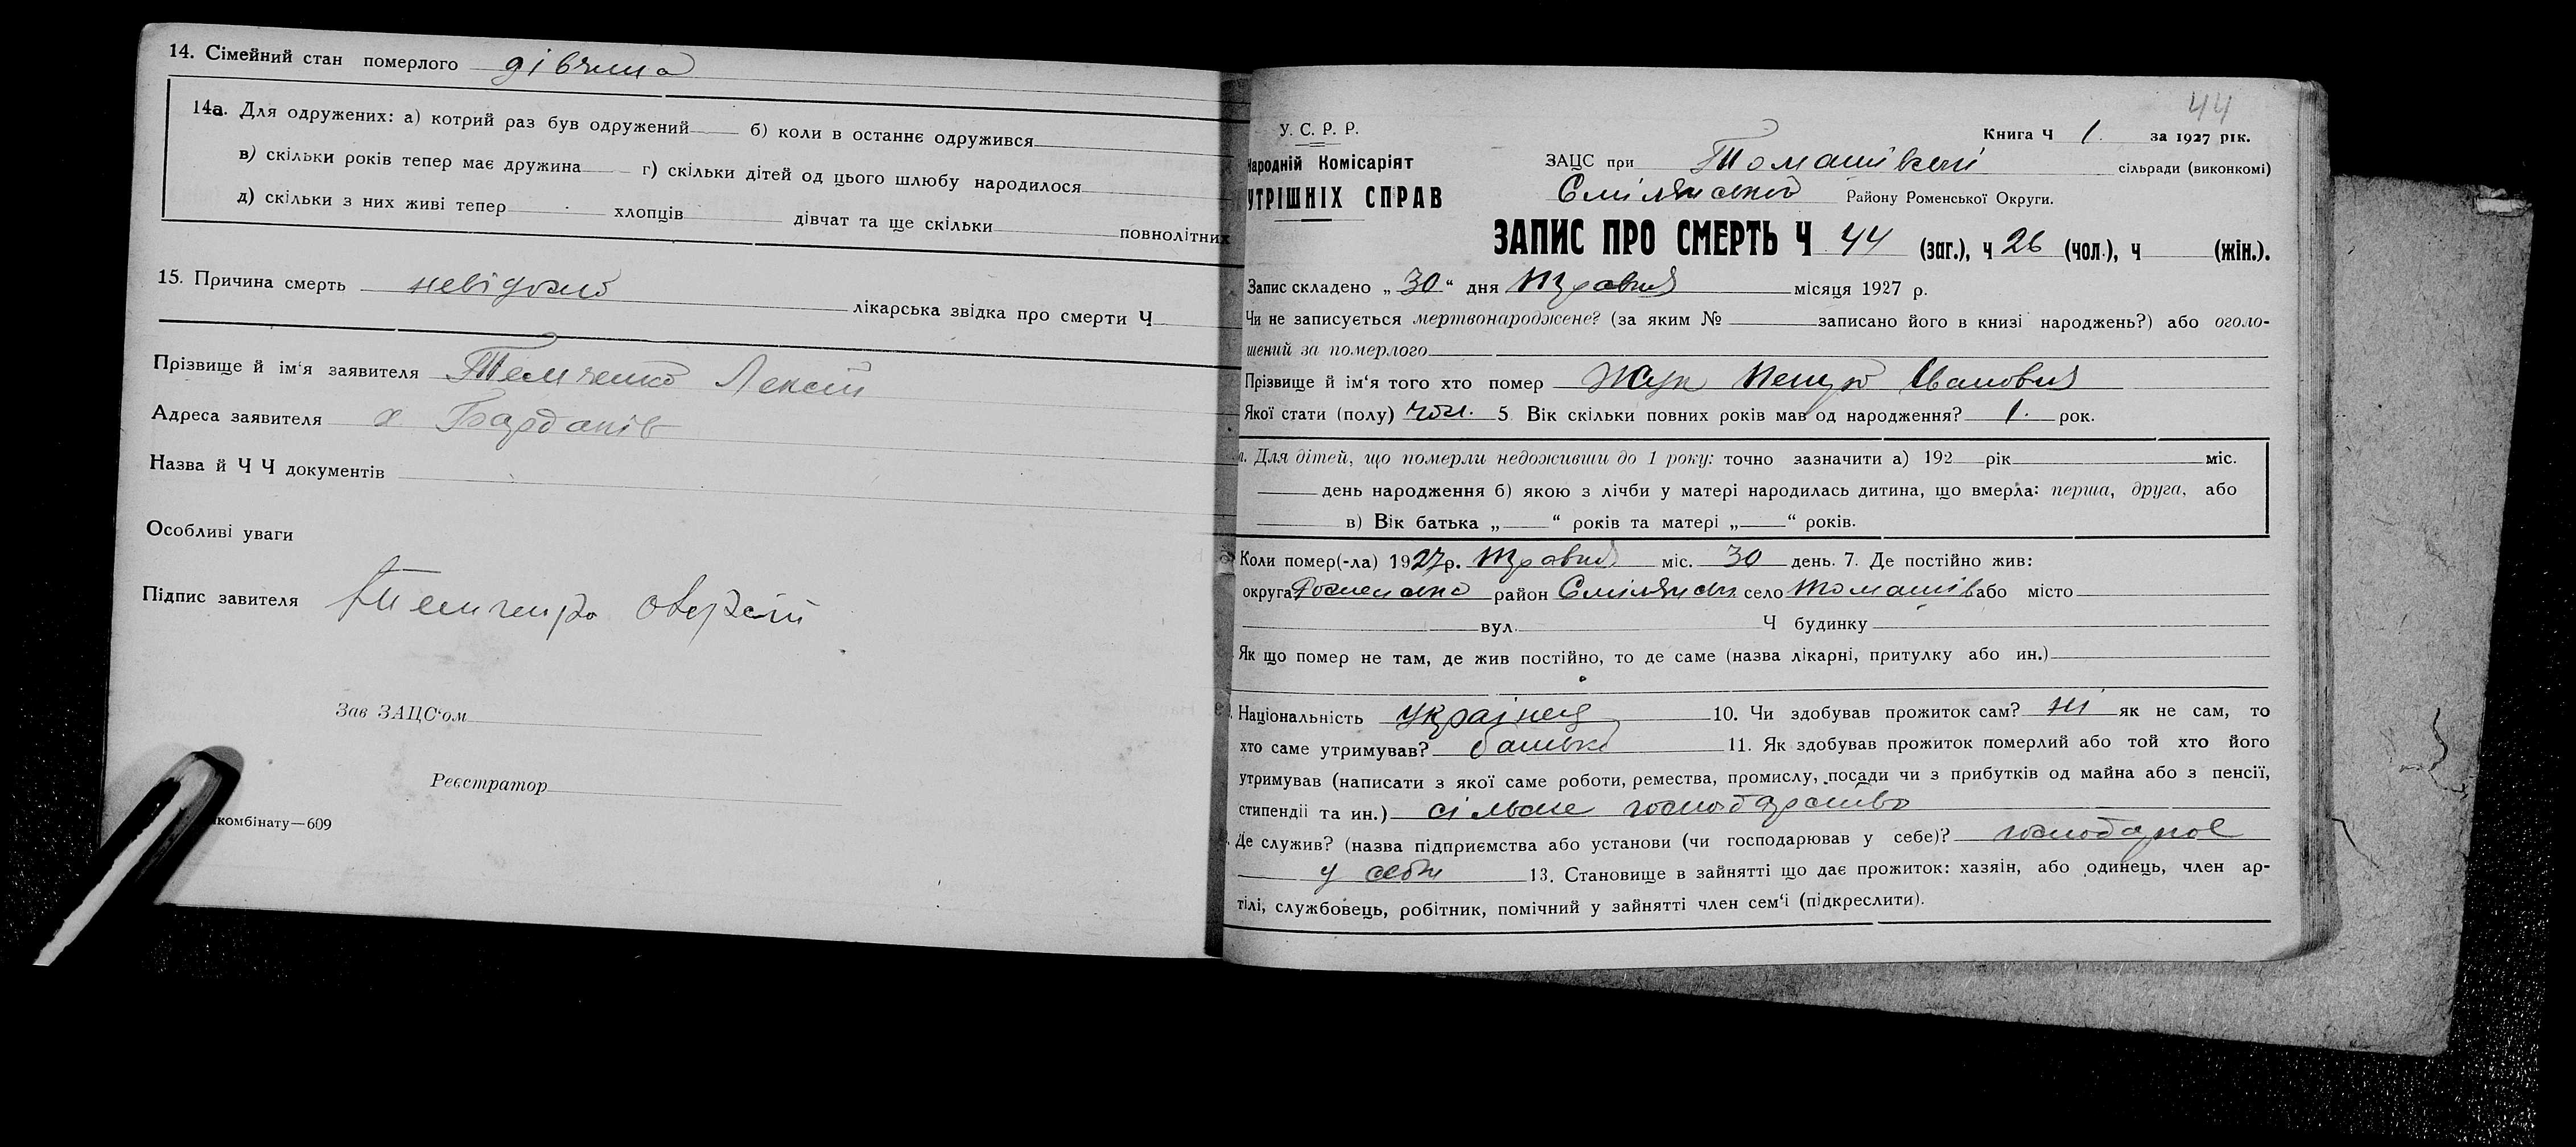 14. Сімейний стан померлого дівчина
14а. Для одружених: а) котрий раз був одружений б) коли в останнє одружився
в) скільки років тепер має дружина г) скільки дітей од цього шлюбу народилося
д) скільки з них живі тепер хлопців дівчат та ще скільки повнолітних
15. Причина смерть невідомо лікарська звідка про смерти Ч
Прізвище й ім'я заявителя Темченко Лексій
Адреса заявителя х Бардаків
Назва й Ч Ч документів
Особливі уваги
Підпис завителя
Зав ЗАЦС'ом
Реєстратор
комбінату—609
44
У. С. Р. Р.
Книга Ч 1. за 1927 рік.
Народній Комісаріят
ЗАЦС при Томашівській сільради (виконкомі)
УТРІШНІХ СПРАВ
Смілянської Району Роменської Округи.
ЗАПИС ПРО СМЕРТЬ Ч 44 (заг.), ч 26 (чол.), ч (жін.).
Запис складено „30“ дня Травня місяця 1927 р.
Чи не записується мертвонароджене? (за яким № записано його в книзі народжень?) або оголо-
шений за померлого
Прізвище й ім'я того хто помер Жук Петро Іванович
Якої стати (полу) чол. 5 Вік скільки повних років мав од народження? 1. рок.
Для дітей, що померли недоживши до 1 року: точно зазначити а) 192 рік міс.
день народження б) якою з лічби у матері народилась дитина, що вмерла: перша, друга, або
в) Вік батька „ “ років та матері „ “ років.
Коли помер(-ла) 1927р. Травня міс. 30 день. 7. Де постійно жив:
округа Роменська район Смілянськ село Томашів або місто
вул. Ч будинку
Як що помер не там, де жив постійно, то де саме (назва лікарні, притулку або ин.)
Національність українець 10. Чи здобував прожиток сам? ні як не сам, то
хто саме утримував? батько 11. Як здобував прожиток померлий або той хто його
утримував (написати з якої саме роботи, ремества, промислу, посади чи з прибутків од майна або з пенсії,
стипендії та ин.) сільське господарство
Де служив? (назва підприємства або установи (чи господарював у себе)? господарює
у себе 13. Становище в зайнятті що дає прожиток: хазяїн, або одинець, член ар-
тілі, службовець, робітник, помічний у зайнятті член сем'ї (підкреслити).